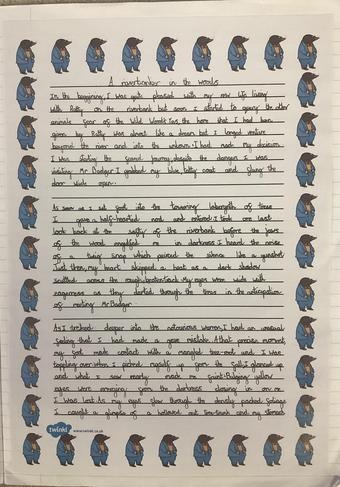 A riverbanker in the woods
In the beginning I was quite pleased with my new life living
with Ratty on the riverbank but soon I started to query the other
animals fear of the Wild Woods. Yes, the home that I had been
given by Ratty was almost like a dream but I longed venture
beyond the river and into the unknown. I had made my decision
I was starting the scared journey, despite the danger, I was
visiting Mr Badger. I grabbed my blue, tatty coat and flung the
door wide open.
As soon as I set foot into the towering labyrinth of trees
I gave a half-hearted nod and entered. I took one last
look back at the safty of the riverbank before the jaws
of the wood engulfed me in darkness. I heard the noise
of a twig snap which pierced the silence like a gunshot.
Just then, my heart skipped a beat as a dark shadow
scuttled across the rough, broken track. My eyes were wide with
eagerness as they darted through the trees in the anticipation
of meeting Mr Badger.
As I trekked deeper into the notorious warren, I had an unusual
feeling that I had made a grave mistake. At that precise moment,
my foot made contact with a mangled tree-root and I was
toppling over. When I picked myself up from the fall, I glanced up
and what I saw nearly made me faint. Bulging yellow
eyes were emerging from the darkness closing in on me.
I was lost. As my eyes slew through the densly packed foliage
I caught a glimpse of a hollowed out tree-trunk and my stomach
twinkl www.twinkl.co.uk